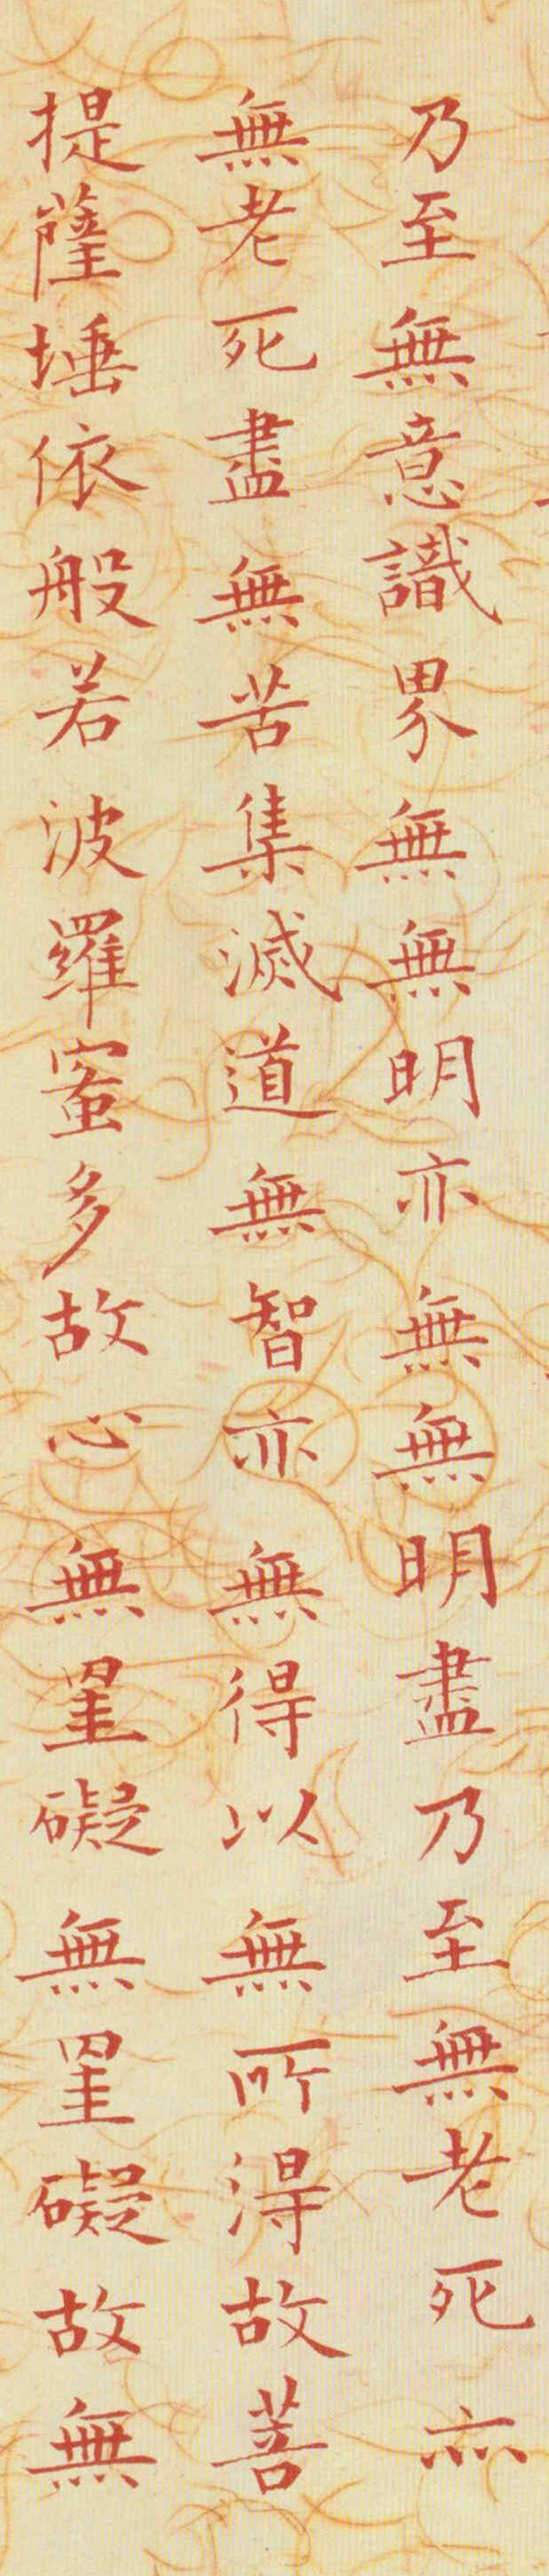 乃至無意識界無無明亦無無明盡乃至無老死亦
無老死盡無苦集滅道無智亦無得以無所得故菩
提薩埵依般若波羅蜜多故心無罣礙無罣礙故無